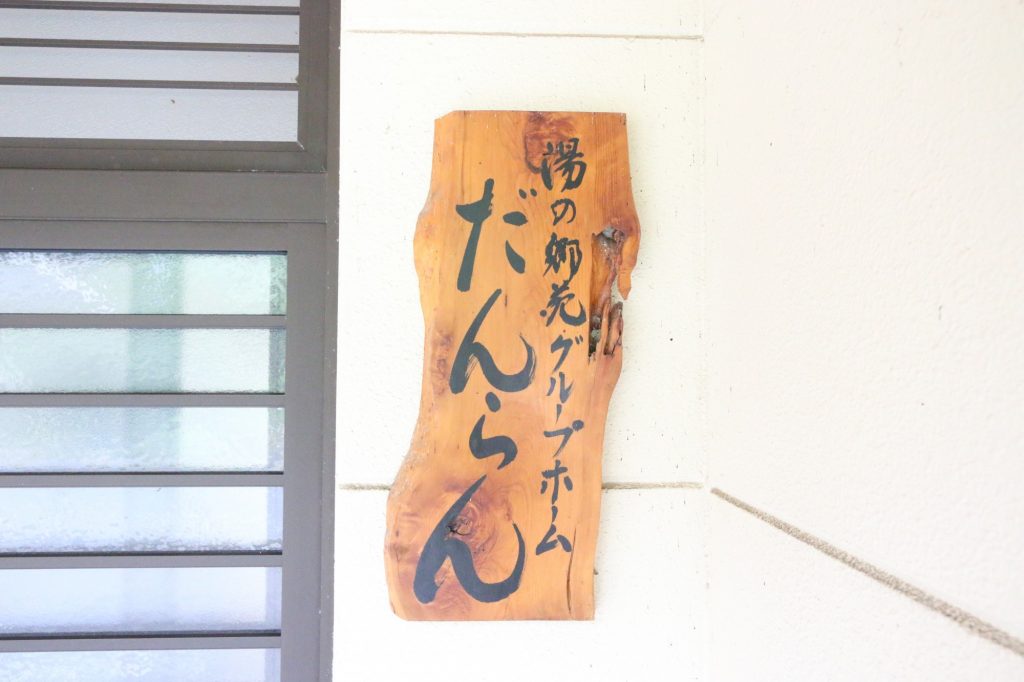 湯の郷苑グループホーム
だんらん